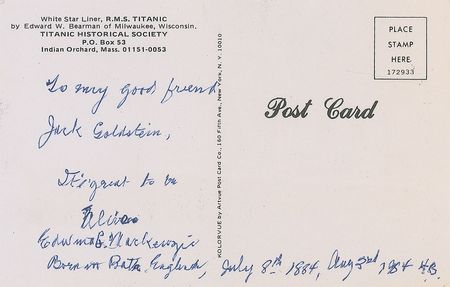 White Star Liner, R.M.S. TITANIC
by Edward W. Bearman of Milwaukee, Wisconsin.
TITANIC HISTORICAL SOCIETY
P.O. Box 53
Indian Orchard, Mass. 01151-0053
PLACE
STAMP
HERE
172933
To my good friend
Jack Goldstein,
Post Card
It's great to be
Alive
Edwina C. Mackenzie
Born in Bath, England, July 8th 1884, Aug 3rd 1984
KOLORVUE by Artvue Post Card Co., 160 Fifth Ave., New York, N.Y. 10010